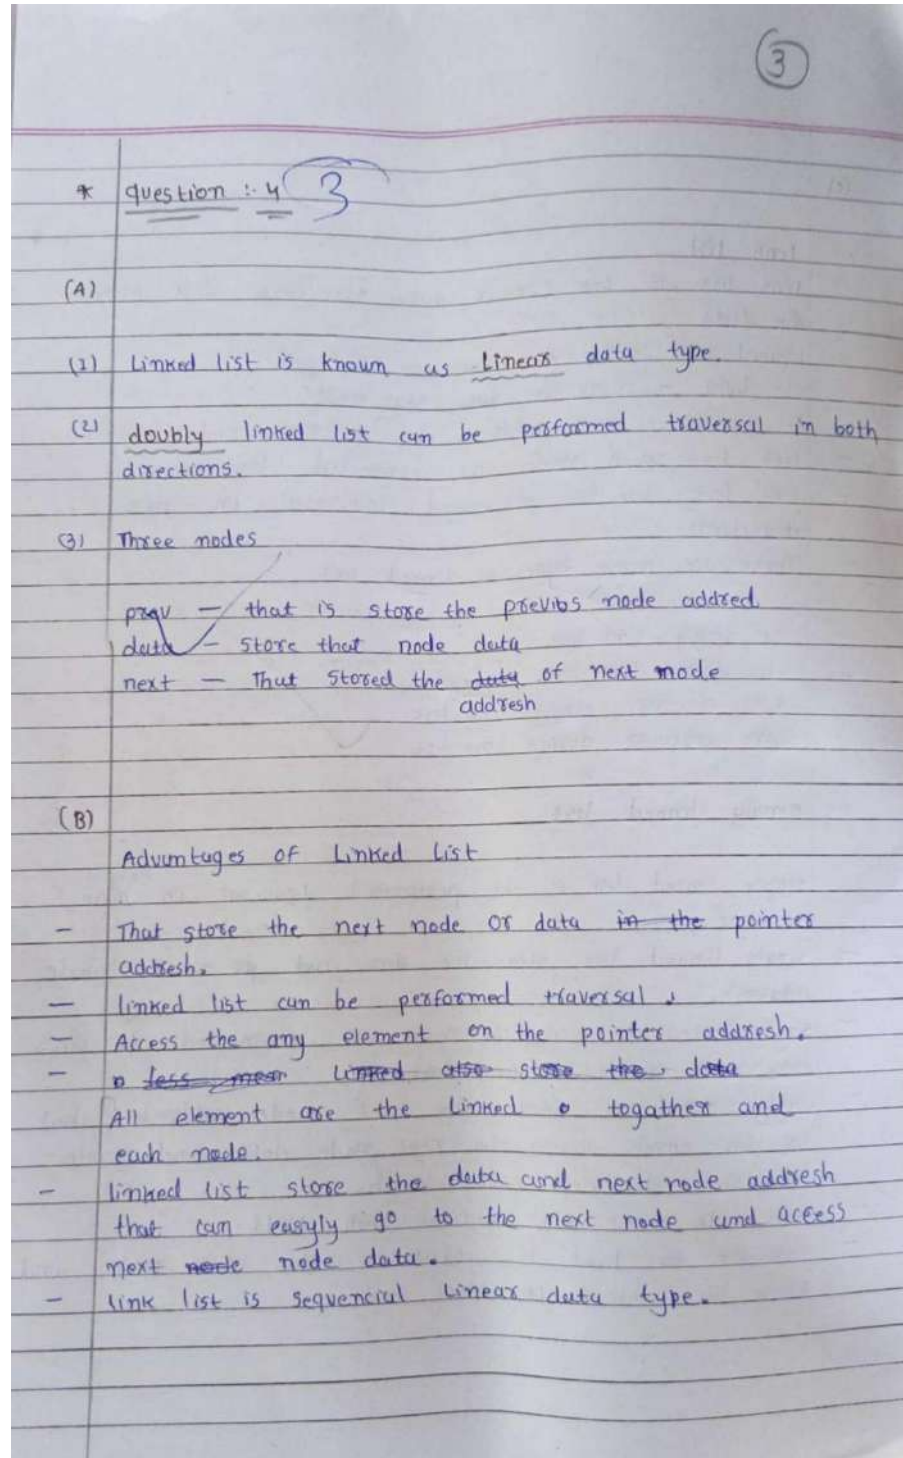 3
* question :- 4 3
(A)
(1) Linked list is known as Linear data type.
(2) doubly linked list can be performed traversal in both
directions.
(3) Three nodes
prev — that is store the previos node addred
data — store that node data
next — That stored the data of next node
addresh
(B)
Advantages of Linked List
- That store the next node or data in the pointer
addresh.
- linked list can be performed traversal.
- Access the any element on the pointer addresh.
- less Linked also store the data
All element are the linked togather and
each node.
- linked list store the data and next node addresh
that can easyly go to the next node and access
next node node data.
- link list is sequencial Linear data type.